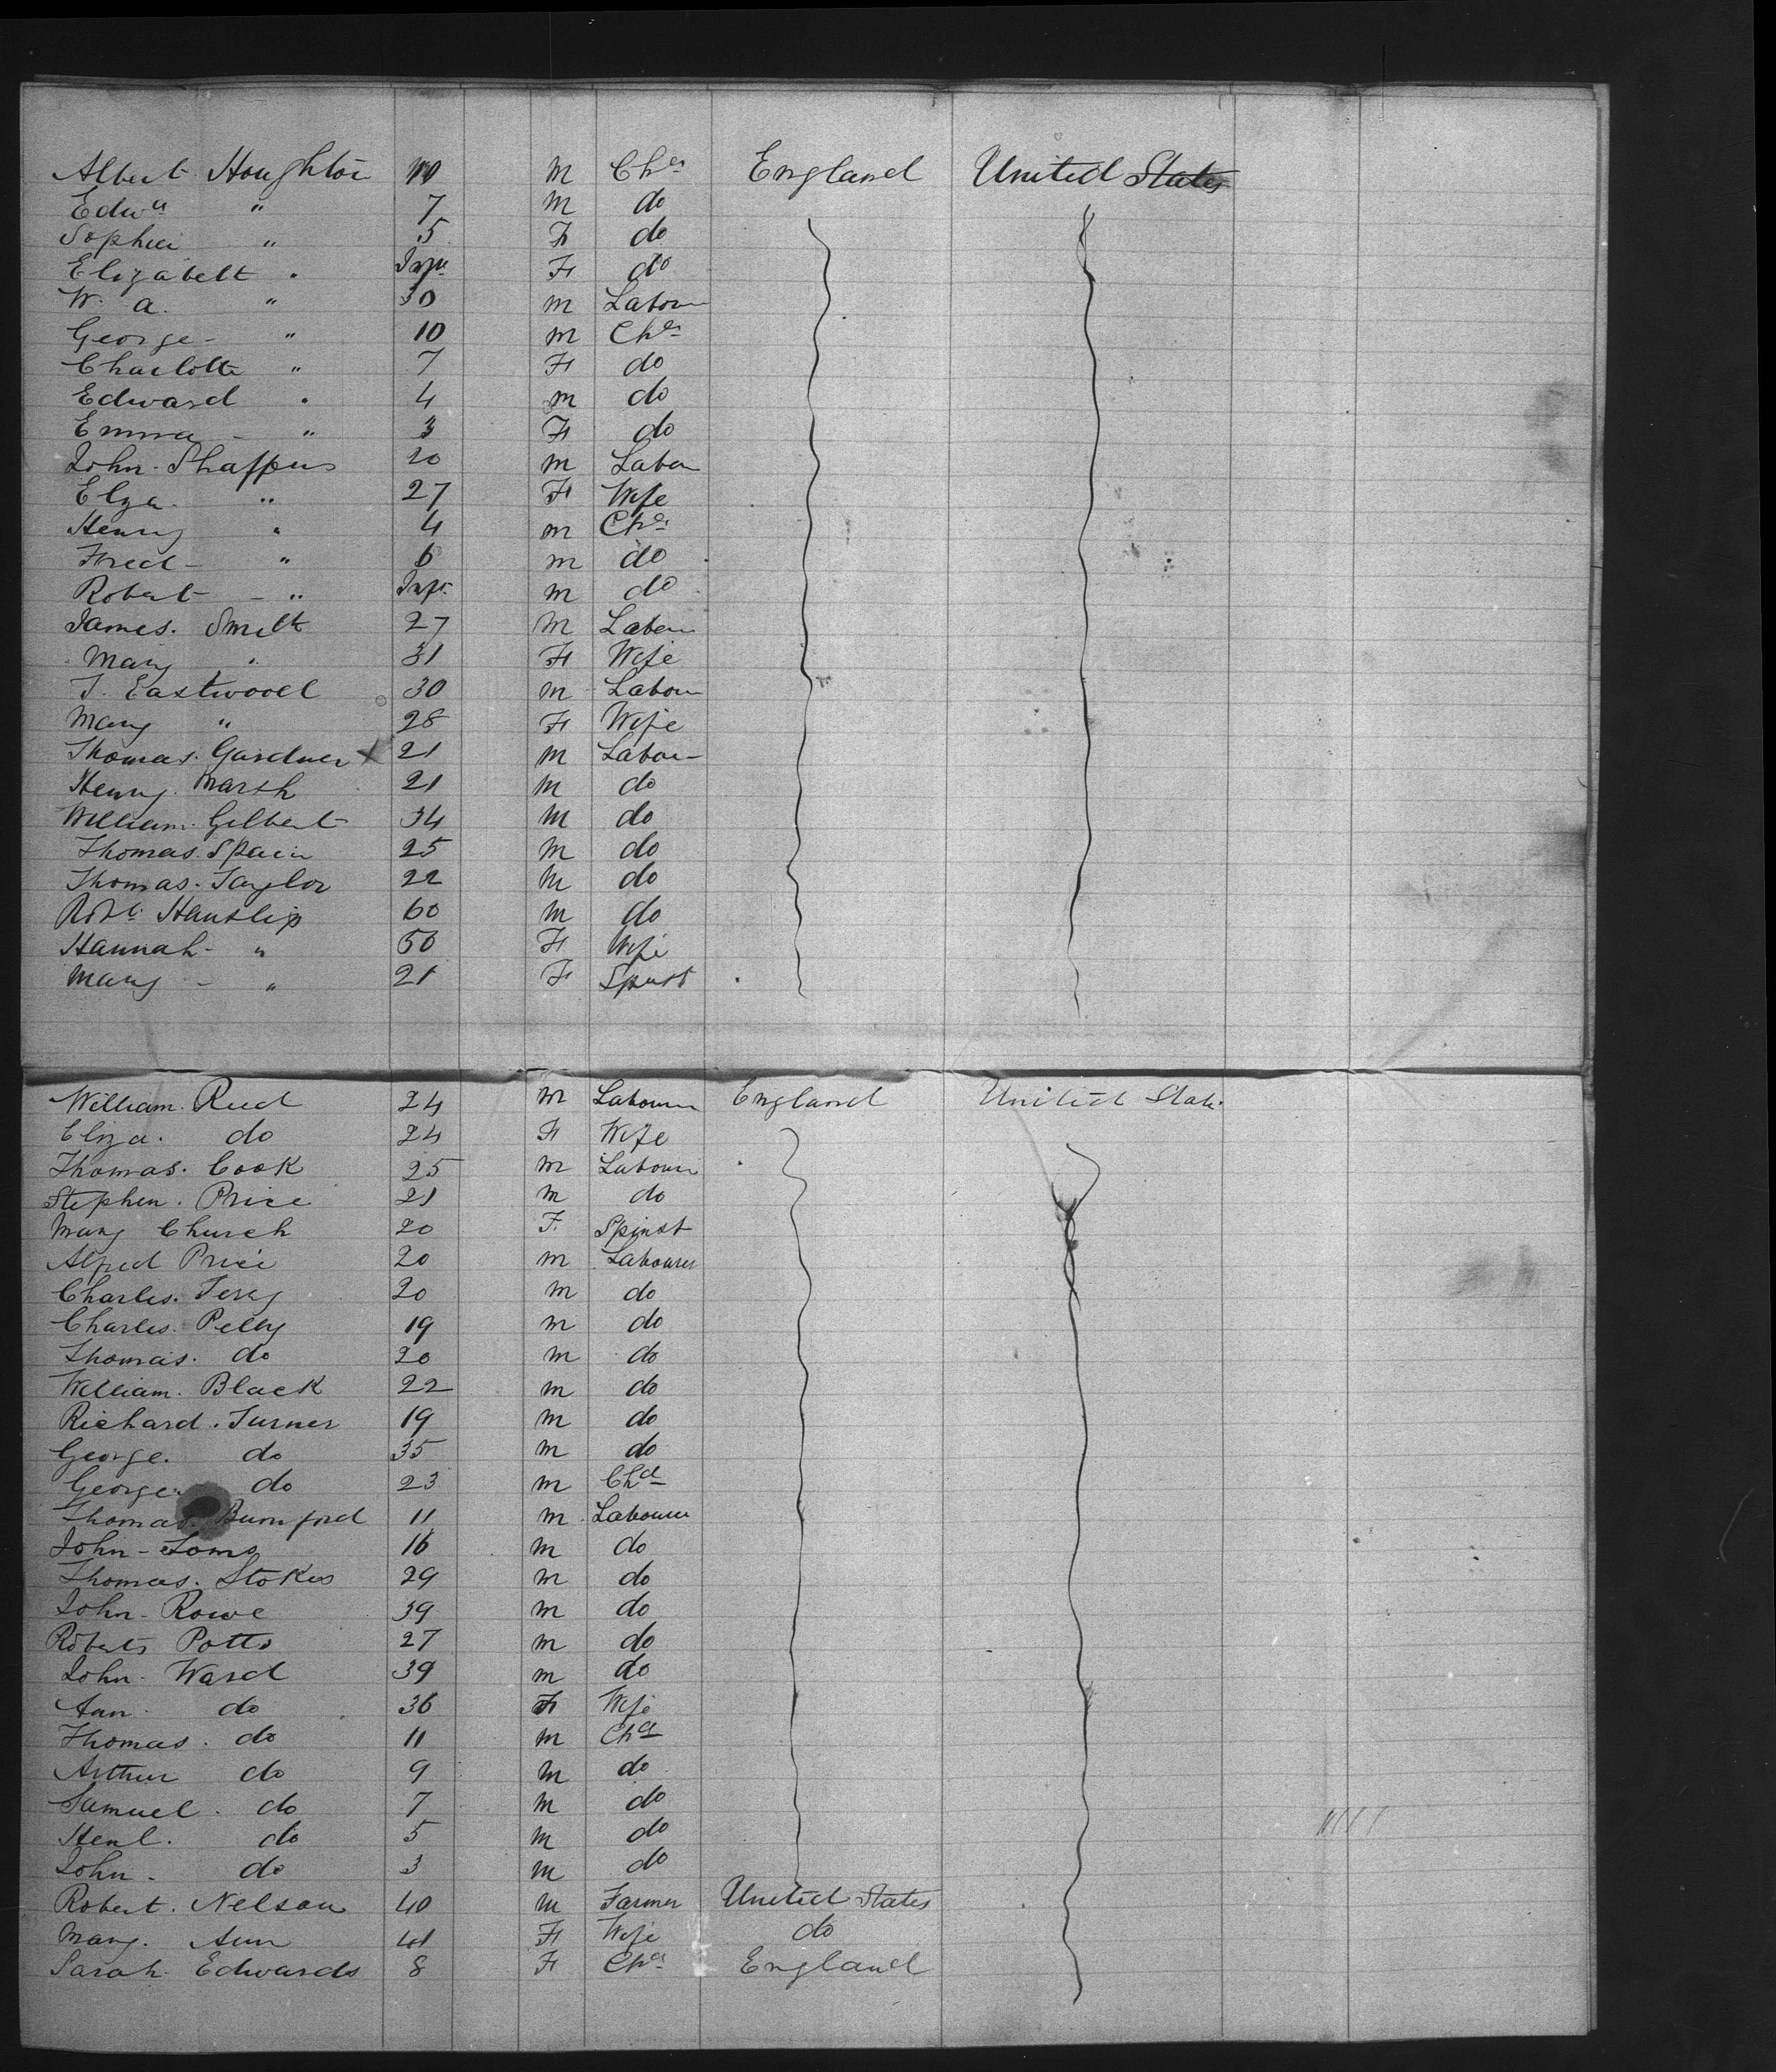 Albert Houghton 10 M Chd England United States
Edwd " 7 M do
Sophia " 5 F do
Elizabeth " Inft F do
W. A. " 30 M Labour
George " 10 M Chd
Charlotte " 7 F do
Edward " 4 M do
Emma " 3 F do
John 20 M Labou
Elza " 27 F Wife
Henry " 4 M Chd
Fred " 6 M do
Robert " Inft M do
James Smith 27 M Labour
Mary " 31 F Wife
J. Eastwood 30 M Labour
Mary " 28 F Wife
Thomas Gardner X 21 M Labour
Henry Marsh 21 M do
William Gilbert 34 M do
Thomas Spain 25 M do
Thomas Taylor 22 M do
Robt Hanslip 60 M do
Hannah " 50 F Wife
Mary " 21 F Spinst
William Reed 24 M Labourer England United State
Eliza do 24 F Wife
Thomas Cook 25 M Labourer
Stephen Price 21 M do
Mary Church 20 F Spinst
Alfred Price 20 M Labourer
Charles 20 M do
Charles Pelly 19 M do
Thomas do 20 M do
William Black 22 M do
Richard Turner 19 M do
George do 35 M do
George do 23 M Chd
Thomas Bumford 11 M Labourer
John Toms 16 M do
Thomas Stokes 29 M do
John Rowe 39 M do
Robert Potts 27 M do
John Ward 39 M do
Ann do 36 F Wife
Thomas do 11 M Chd
Arthur do 9 M do
Samuel do 7 M do
do 5 M do
John do 3 M do
Robert Nelson 40 M Farmer United States
Mary Ann 41 F Wife do
Sarah Edwards 8 F Chd England